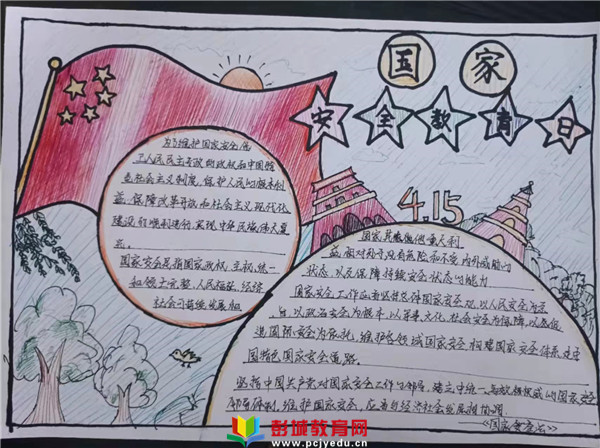 国家
安全教育日
4.15
为了维护国家安全,保
卫人民民主专政的政权和中国特
色社会主义制度,保护人民的根本利
益,保障改革开放和社会主义现代化
建设的顺利进行,实现中华民族伟大复
兴。
国家安全是指国家政权、主权、统一
和领土完整、人民福祉、经济
社会可持续发展和
国家其他重大利
益相对处于没有危险和不受内外威胁的
状态,以及保障持续安全状态的能力
国家安全工作应当坚持总体国家安全观,以人民安全为宗
旨,以政治安全为根本,以军事、文化、社会安全为保障,以促
进国际安全为依托,维护各领域国家安全,构建国家安全体系,走中
国特色国家安全道路。
坚持中国共产党对国家安全工作的领导,建立中统一、高效权威的国家安全
领导体制,维护国家安全,应当与经济社会发展相协调
《国家安全法》
彭城教育网
www.pcjyedu.cn